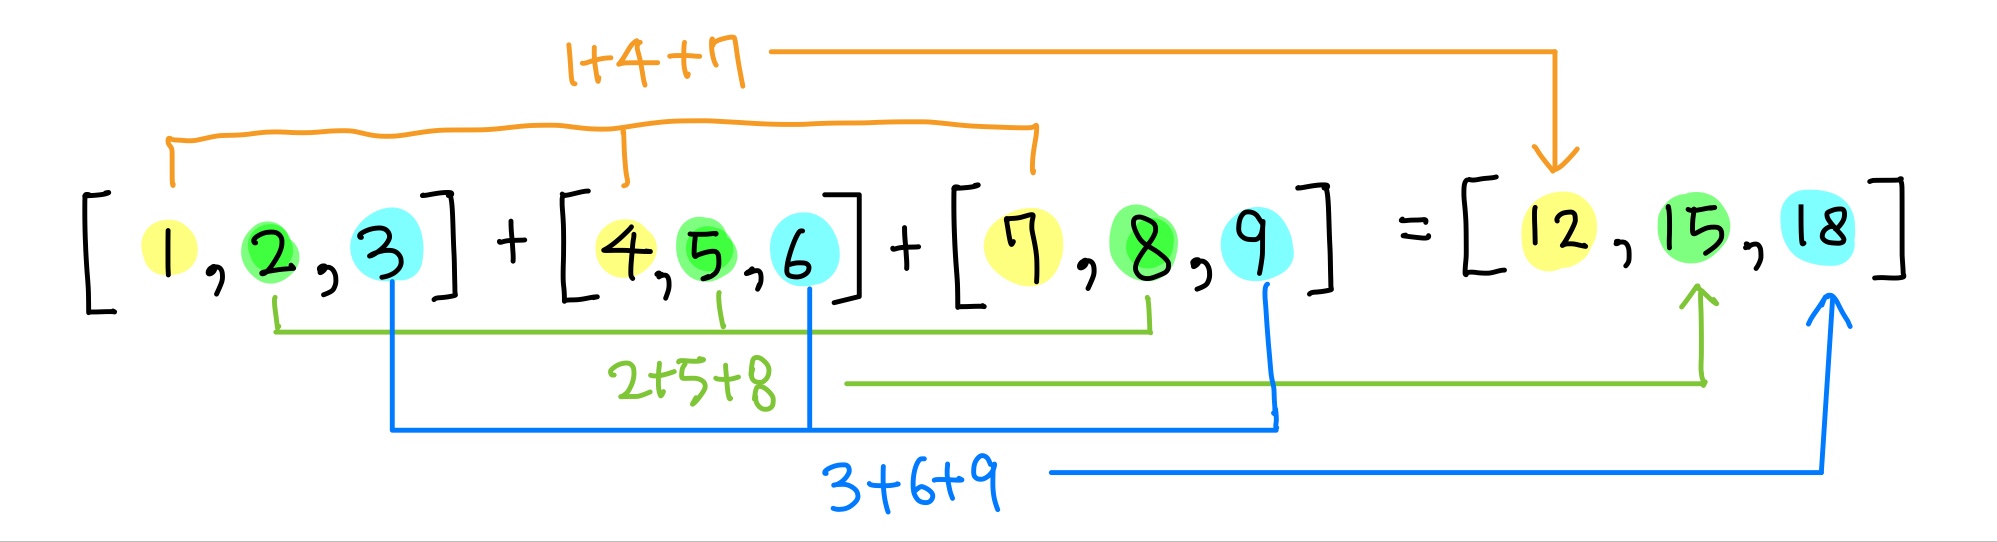 1+4+7
[1,2,3] + [4,5,6] + [7,8,9] = [12,15,18]
2+5+8
3+6+9